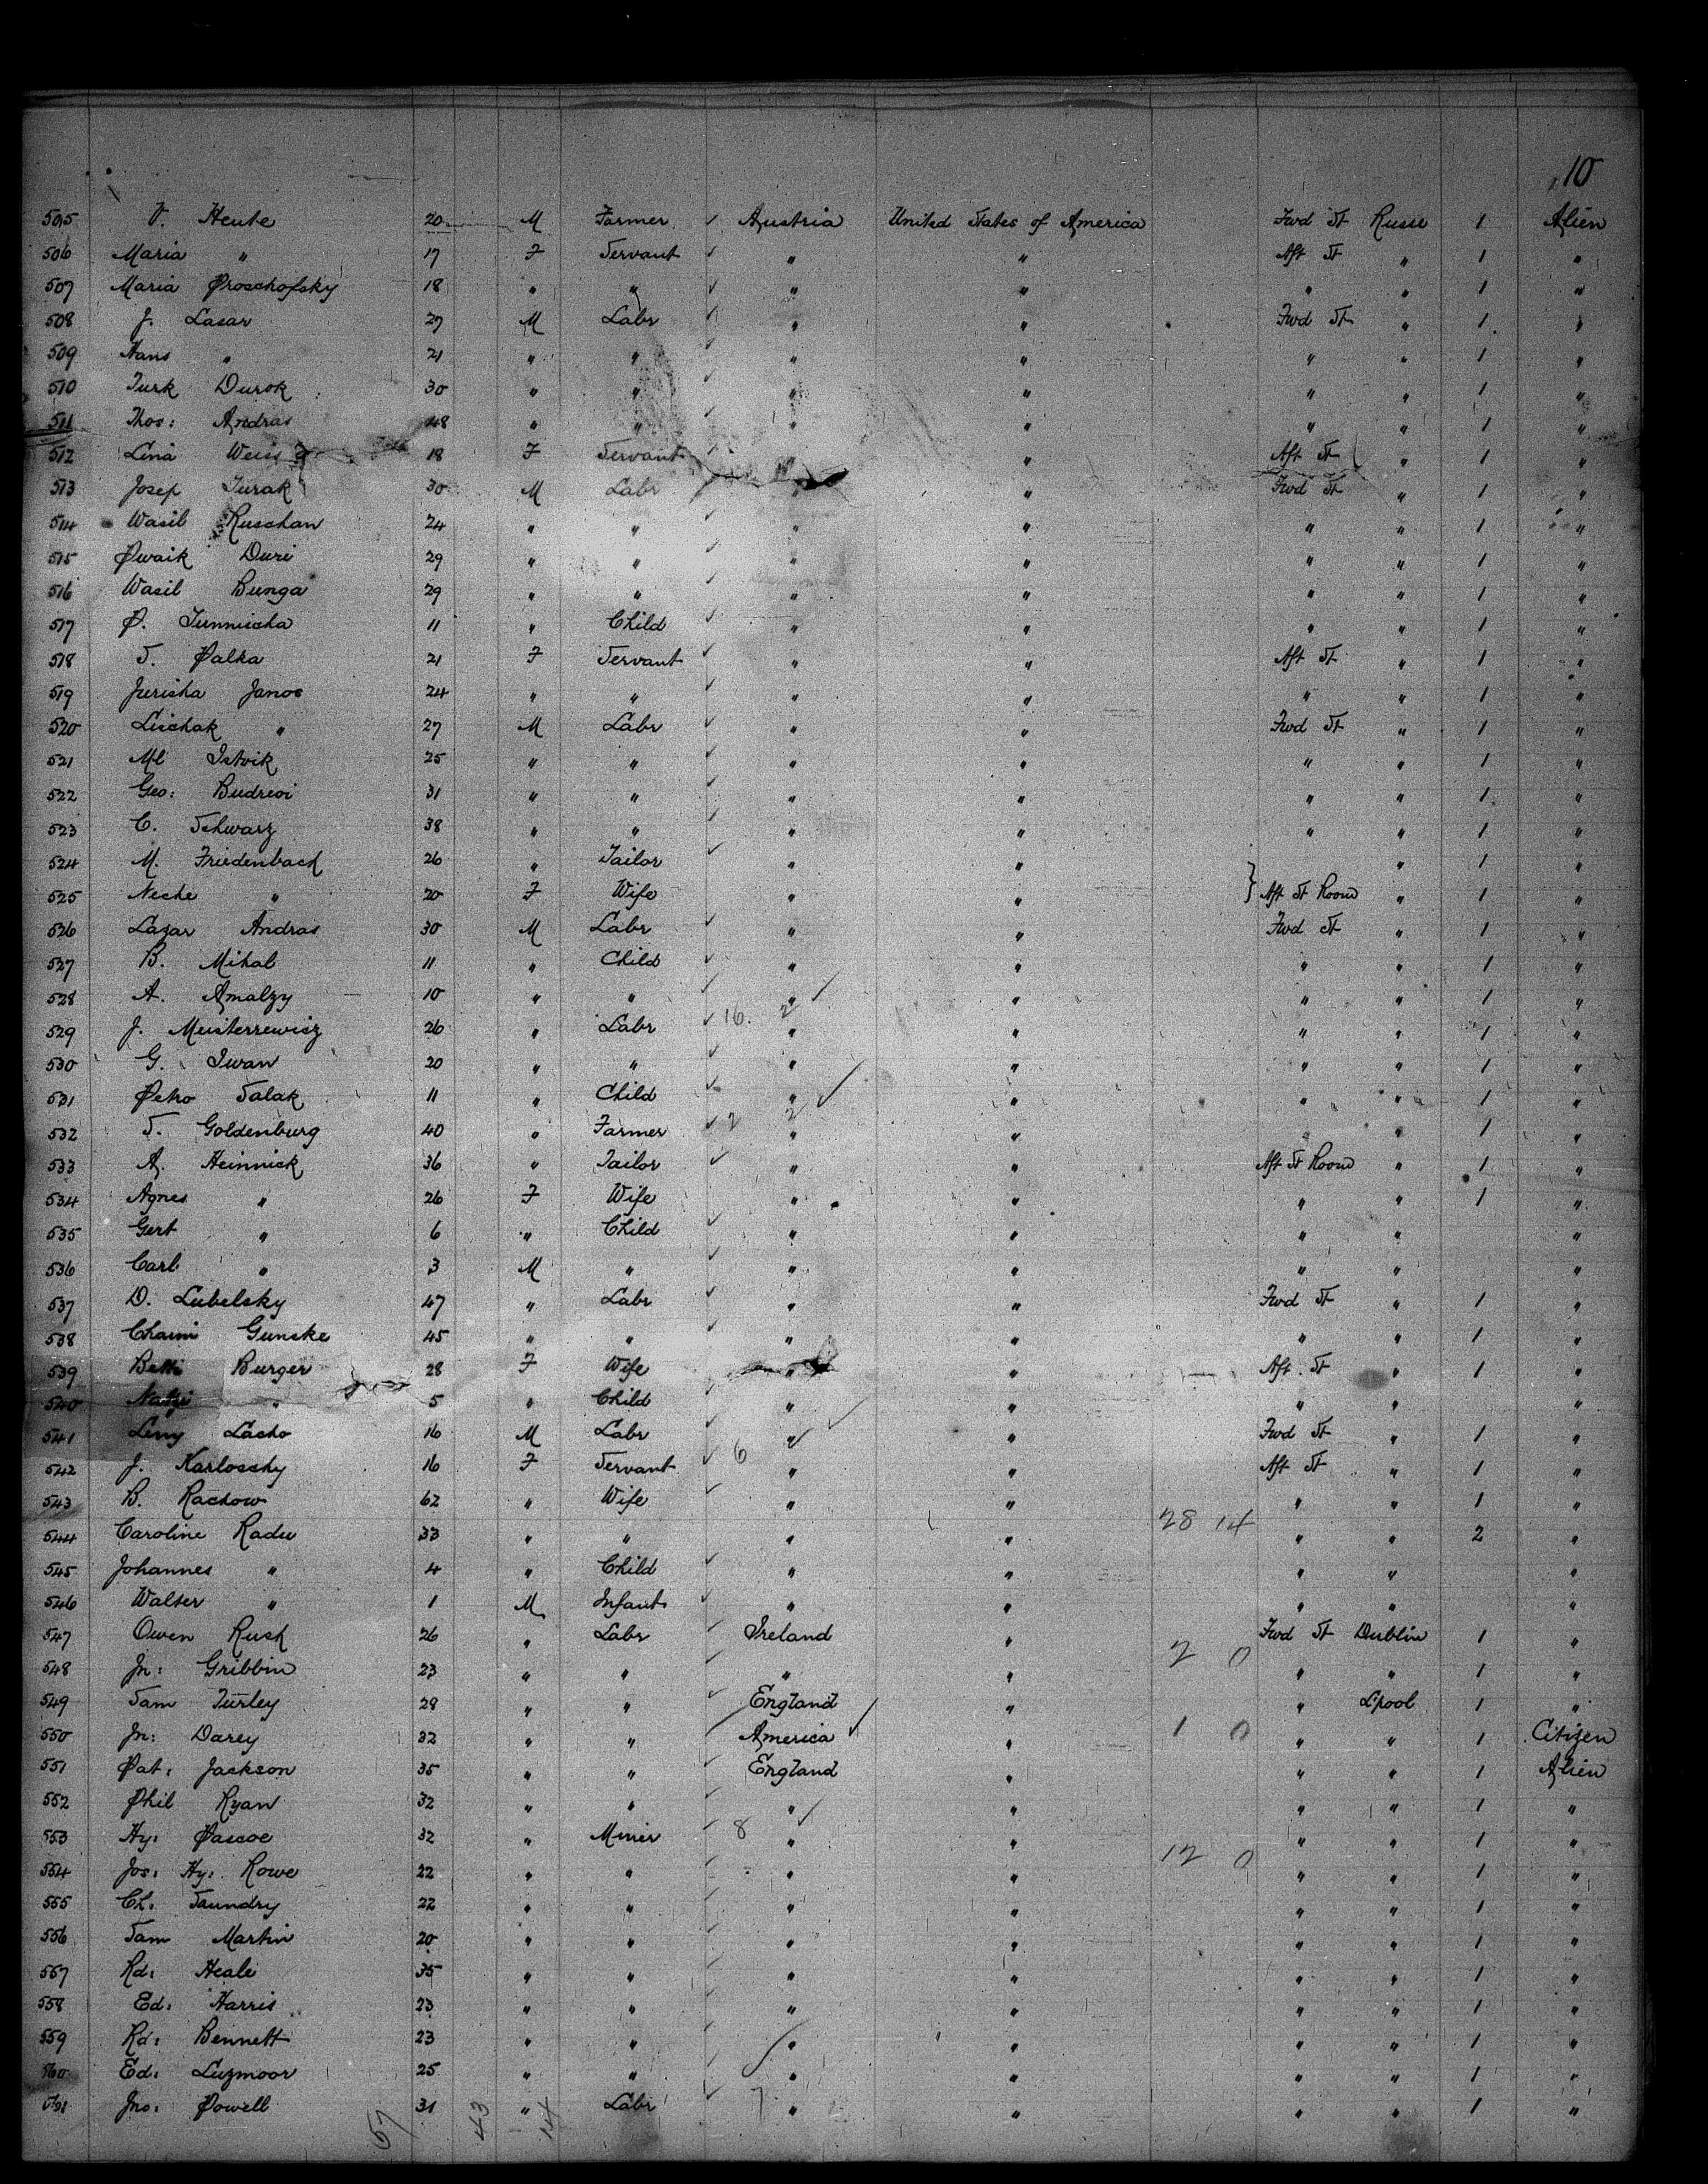 10
505 V. Heute 20 M Farmer ✓ Austria United States of America Fwd St Russe 1 Alien
506 Maria " 17 F Servant ✓ " " Aft St " 1 "
507 Maria Proschofsky 18 " " ✓ " " " " 1 "
508 J. Lasar 27 M Labr ✓ " " Fwd St " 1 "
509 Hans " 21 " " ✓ " " " " 1 "
510 Turk Durok 30 " " ✓ " " " " 1 "
511 Thos: Andras 48 " " ✓ " " " " 1 "
512 Lina Weiss 18 F Servant ✓ " " Aft St " 1 "
513 Josep Turak 30 M Labr ✓ " " Fwd St " 1 "
514 Wasil Ruschan 24 " " ✓ " " " " 1 "
515 Pwaik Duri 29 " " ✓ " " " " 1 "
516 Wasil Bunga 29 " " ✓ " " " " 1 "
517 P. Tunnischa 11 " Child ✓ " " " " 1 "
518 S. Palka 21 F Servant ✓ " " Aft St " 1 "
519 Jurisha Janos 24 " " ✓ " " " " 1 "
520 Lischak " 27 M Labr ✓ " " Fwd St " 1 "
521 Ml Istvik 25 " " ✓ " " " " 1 "
522 Geo: Budrevi 31 " " ✓ " " " " 1 "
523 C. Schwarz 38 " " ✓ " " " " 1 "
524 M. Friedenback 26 " Tailor ✓ " " " 1 "
525 Neche " 20 F Wife " " } Aft St Room " 1 "
526 Lazar Andras 30 M Labr ✓ " " Fwd St " 1 "
527 B. Mihal 11 " Child ✓ " " " " 1 "
528 A. Amalzy 10 " " ✓ " ✓ " " " 1 "
529 J. Meisterrewicz 26 " Labr ✓ 16. 2 " " " " 1 "
530 G. Iwan 20 " " ✓ " " " " 1 "
531 Petro Salak 11 " Child ✓ " ✓ " " " 1 "
532 S. Goldenburg 40 " Farmer ✓ 2 2 " " " " 1 "
533 A. Heinnick 36 " Tailor ✓ " " Aft St Room " 1 "
534 Agnes " 26 F Wife " " " " 1 "
535 Gert " 6 " Child ✓ " " " " "
536 Carl " 3 M " ✓ " " " " "
537 D. Lubelsky 47 " Labr ✓ " " Fwd St " 1 "
538 Chaim Gunske 45 " " ✓ " " " " 1 "
539 Betti Burger 28 F Wife " " Aft St " 1 "
540 " 5 " Child ✓ " " " " "
541 Leny Lacho 16 M Labr ✓ " ✓ " Fwd St " 1 "
542 J. Karloschy 16 F Servant ✓ 6 " " Aft St " 1 "
543 B. Rachow 62 " Wife ✓ " " " " 1 "
28 14
544 Caroline Radu 33 " " " " " " 2 "
545 Johannes " 4 " Child ✓ " " " " "
546 Walter " 1 M Infant ✓ " " " " "
547 Owen Rusk 26 " Labr Ireland " Fwd St Dublin 1 "
2 0
548 Jn: Gribbin 23 " " ✓ " " " " 1 "
549 Sam Turley 28 " " ✓ England " " L'pool 1 "
550 Jn: Darey 32 " " America ✓ " 1 0 " " 1 Citizen
551 Pat: Jackson 35 " " ✓ England " " " 1 Alien
552 Phil Ryan 32 " " ✓ " ✓ " " " 1 "
553 Hy: Pascoe 32 " Miner ✓ 8 " " " " 1 "
12 0
554 Jos: Hy: Rowe 22 " " ✓ " " " " 1 "
555 Ch: Saundry 22 " " ✓ " " " " 1 "
556 Sam Martin 20 " " ✓ " " " " 1 "
557 Rd: Heale 35 " " ✓ " " " " 1 "
558 Ed: Harris 23 " " ✓ " " " " 1 "
559 Rd: Bennett 23 " " ✓ " " " " 1 "
560 Ed: Luzmoor 25 " " ✓ " " " " 1 "
561 Jno: Powell 31 " Labr ✓ 7 " " " " 1 "
57 43 14